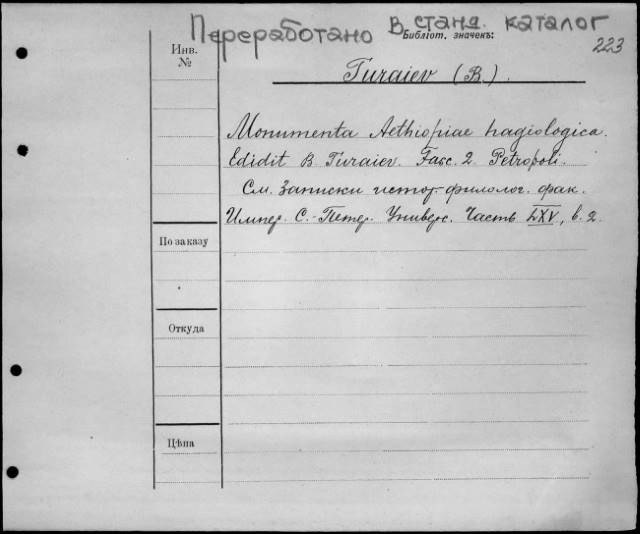 Переработано в станд. каталог
Библіот. значекъ:
223
Инв. №
Turaiev (B.).
Monumenta Aethiopiae hagiologica.
Edidit B. Turaiev. Fasc. 2. Petropoli.
См. Записки истор.-филолог. фак.
Импер. С.-Петер. Универс. Часть LXV, в. 2
По заказу
Откуда
Цѣна